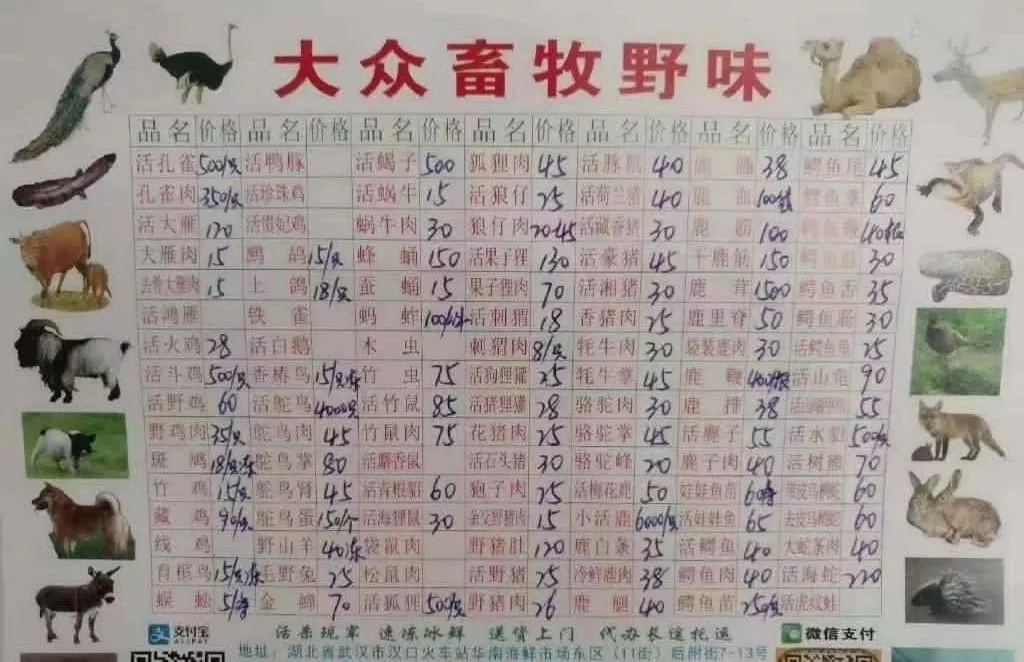 大众畜牧野味
品名 价格 品名 价格 品名 价格 品名 价格 品名 价格 品名 价格 品名 价格
活孔雀 500/只 活鸭豚 活蝎子 500 狐狸肉 45 活豚鼠 40 38 鳄鱼尾 45
孔雀肉 350/只 活珍珠鸡 活蜗牛 15 活狼仔 25 活荷兰猪 40 鹿血 鳄鱼掌 60
活大雁 120 活贵妃鸡 蜗牛肉 30 狼仔肉 20-45 活藏香猪 30 鹿筋 100
大雁肉 15 鹧鸪 15/只 蜂蛹 150 活果子狸 130 活豪猪 45 干鹿筋 150 30
去骨大雁肉 15 土鸽 18/只 蚕蛹 15 果子狸肉 70 活湘猪 30 鹿茸 1500 鳄鱼舌 35
活鸿雁 铁雀 蚂蚱 活刺猬 18 香猪肉 25 鹿里脊 50 鳄鱼肠 30
活火鸡 28 活白鹅 木虫 刺猬肉 8/只 牦牛肉 30 袋装鹿肉 30 活鳄鱼龟 25
活斗鸡 500/只 香椿鸟 竹虫 75 活狗狸獾 25 牦牛掌 45 鹿鞭 活山龟 90
活野鸡 60 活鸵鸟 活竹鼠 85 活猪狸獾 28 骆驼肉 30 鹿排 38 55
野鸡肉 35/只 鸵鸟肉 45 竹鼠肉 75 花猪肉 25 骆驼掌 45 活麂子 55 500/只
斑鸠 鸵鸟掌 80 活麝香鼠 活石头猪 30 骆驼峰 20 麂子肉 40 活树熊 70
竹鸡 15/只 鸵鸟肾 45 活青根貂 60 狍子肉 25 活梅花鹿 50 娃娃鱼苗 60
藏鸡 90/只 鸵鸟蛋 150/个 活海狸鼠 30 15 小活鹿 6000/只 活娃娃鱼 65 60
线鸡 野山羊 袋鼠肉 野猪肚 120 鹿白条 35 活鳄鱼 40 大蛇条肉 40
自槟鸟 毛野兔 25 松鼠肉 活野猪 25 冷鲜鹿肉 38 鳄鱼肉 40 活海蛇 220
蜈蚣 金蝉 70 活狐狸 500/只 野猪肉 26 鹿腿 40 鳄鱼苗 活虎纹蛙
支付宝 活杀现宰 速冻冰鲜 送货上门 代办长途托运 微信支付
地址：湖北省武汉市汉口火车站华南海鲜市场东区（11街）后附街7-13号